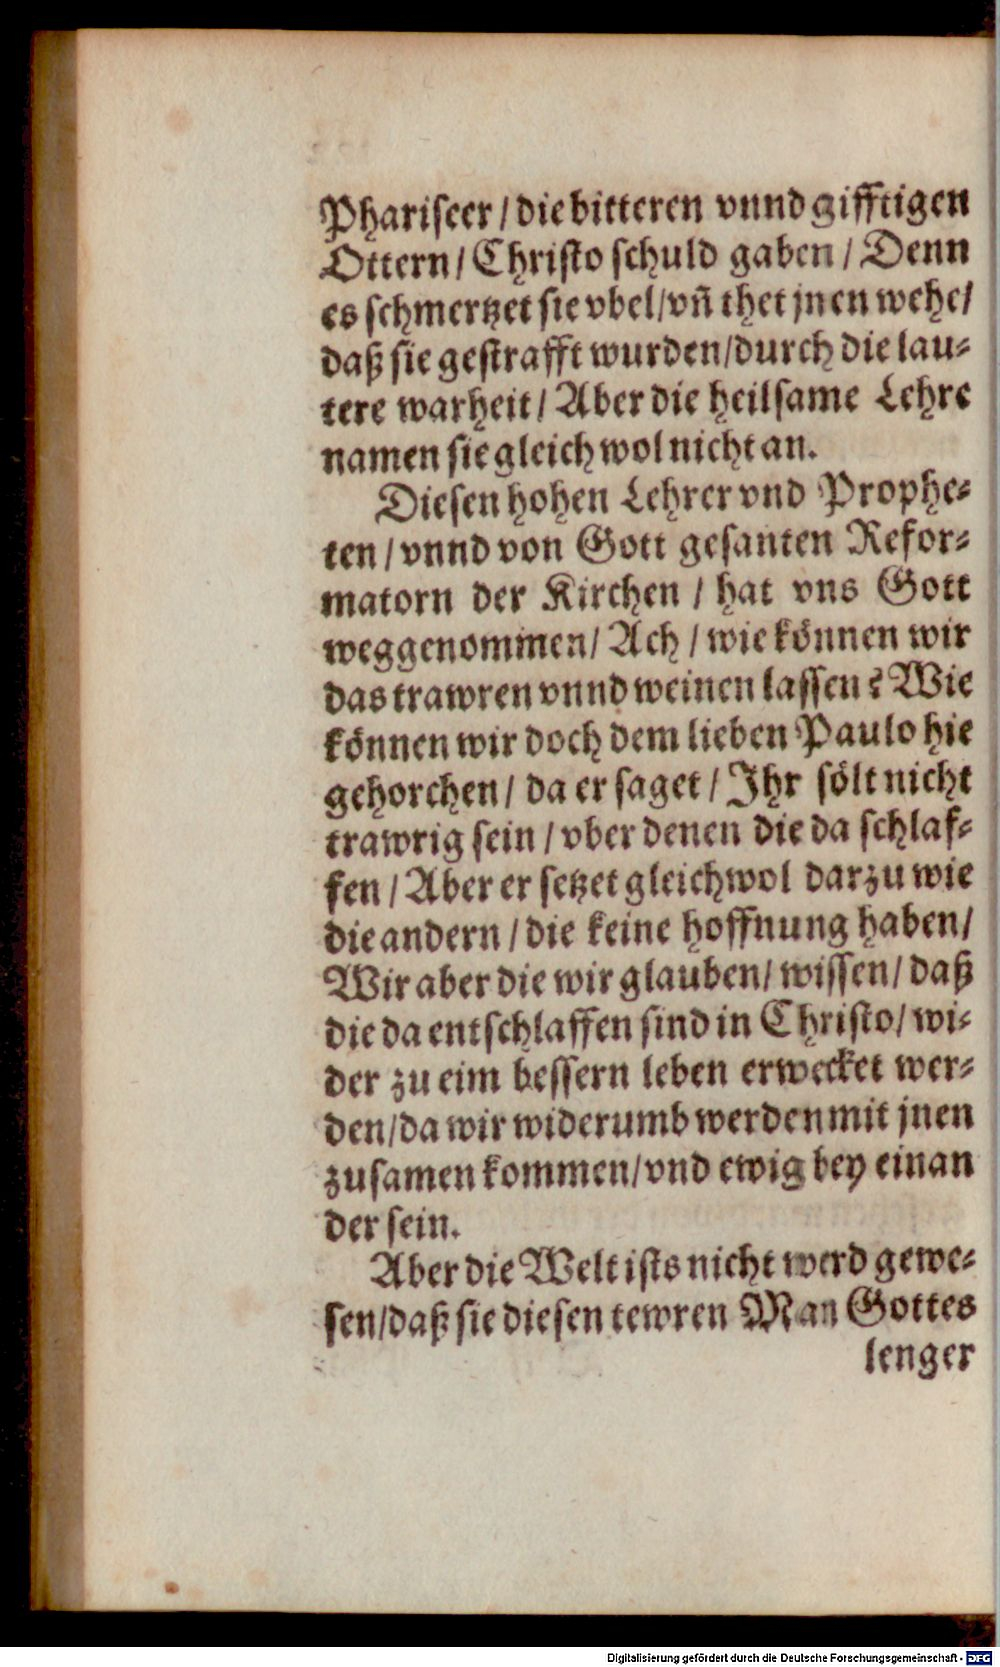 Phariseer / die bitteren vnnd gifftigen
Ottern / Christo schuld gaben / Denn
es schmertzet sie vbel / vñ thet jnen wehe /
daß sie gestrafft wurden / durch die lau⸗
tere warheit / Aber die heilsame Lehre
namen sie gleichwol nicht an.
Diesen hohen Lehrer vnd Prophe⸗
ten / vnnd von Gott gesanten Refor⸗
matorn der Kirchen / hat vns Gott
weggenommen / Ach / wie können wir
das trawren vnnd weinen lassen? Wie
können wir doch dem lieben Paulo hie
gehorchen / da er saget / Jhr sölt nicht
trawrig sein / vber denen die da schlaf⸗
fen / Aber er setzet gleichwol darzu wie
die andern / die keine hoffnung haben /
Wir aber die wir glauben / wissen / daß
die da entschlaffen sind in Christo / wi⸗
der zu eim bessern leben erwecket wer⸗
den / da wir widerumb werden mit jnen
zusamen kommen / vnd ewig bey einan
der sein.
Aber die Welt ists nicht werd gewe⸗
sen / daß sie diesen tewren Man Gottes
lenger
Digitalisierung gefördert durch die Deutsche Forschungsgemeinschaft - DFG